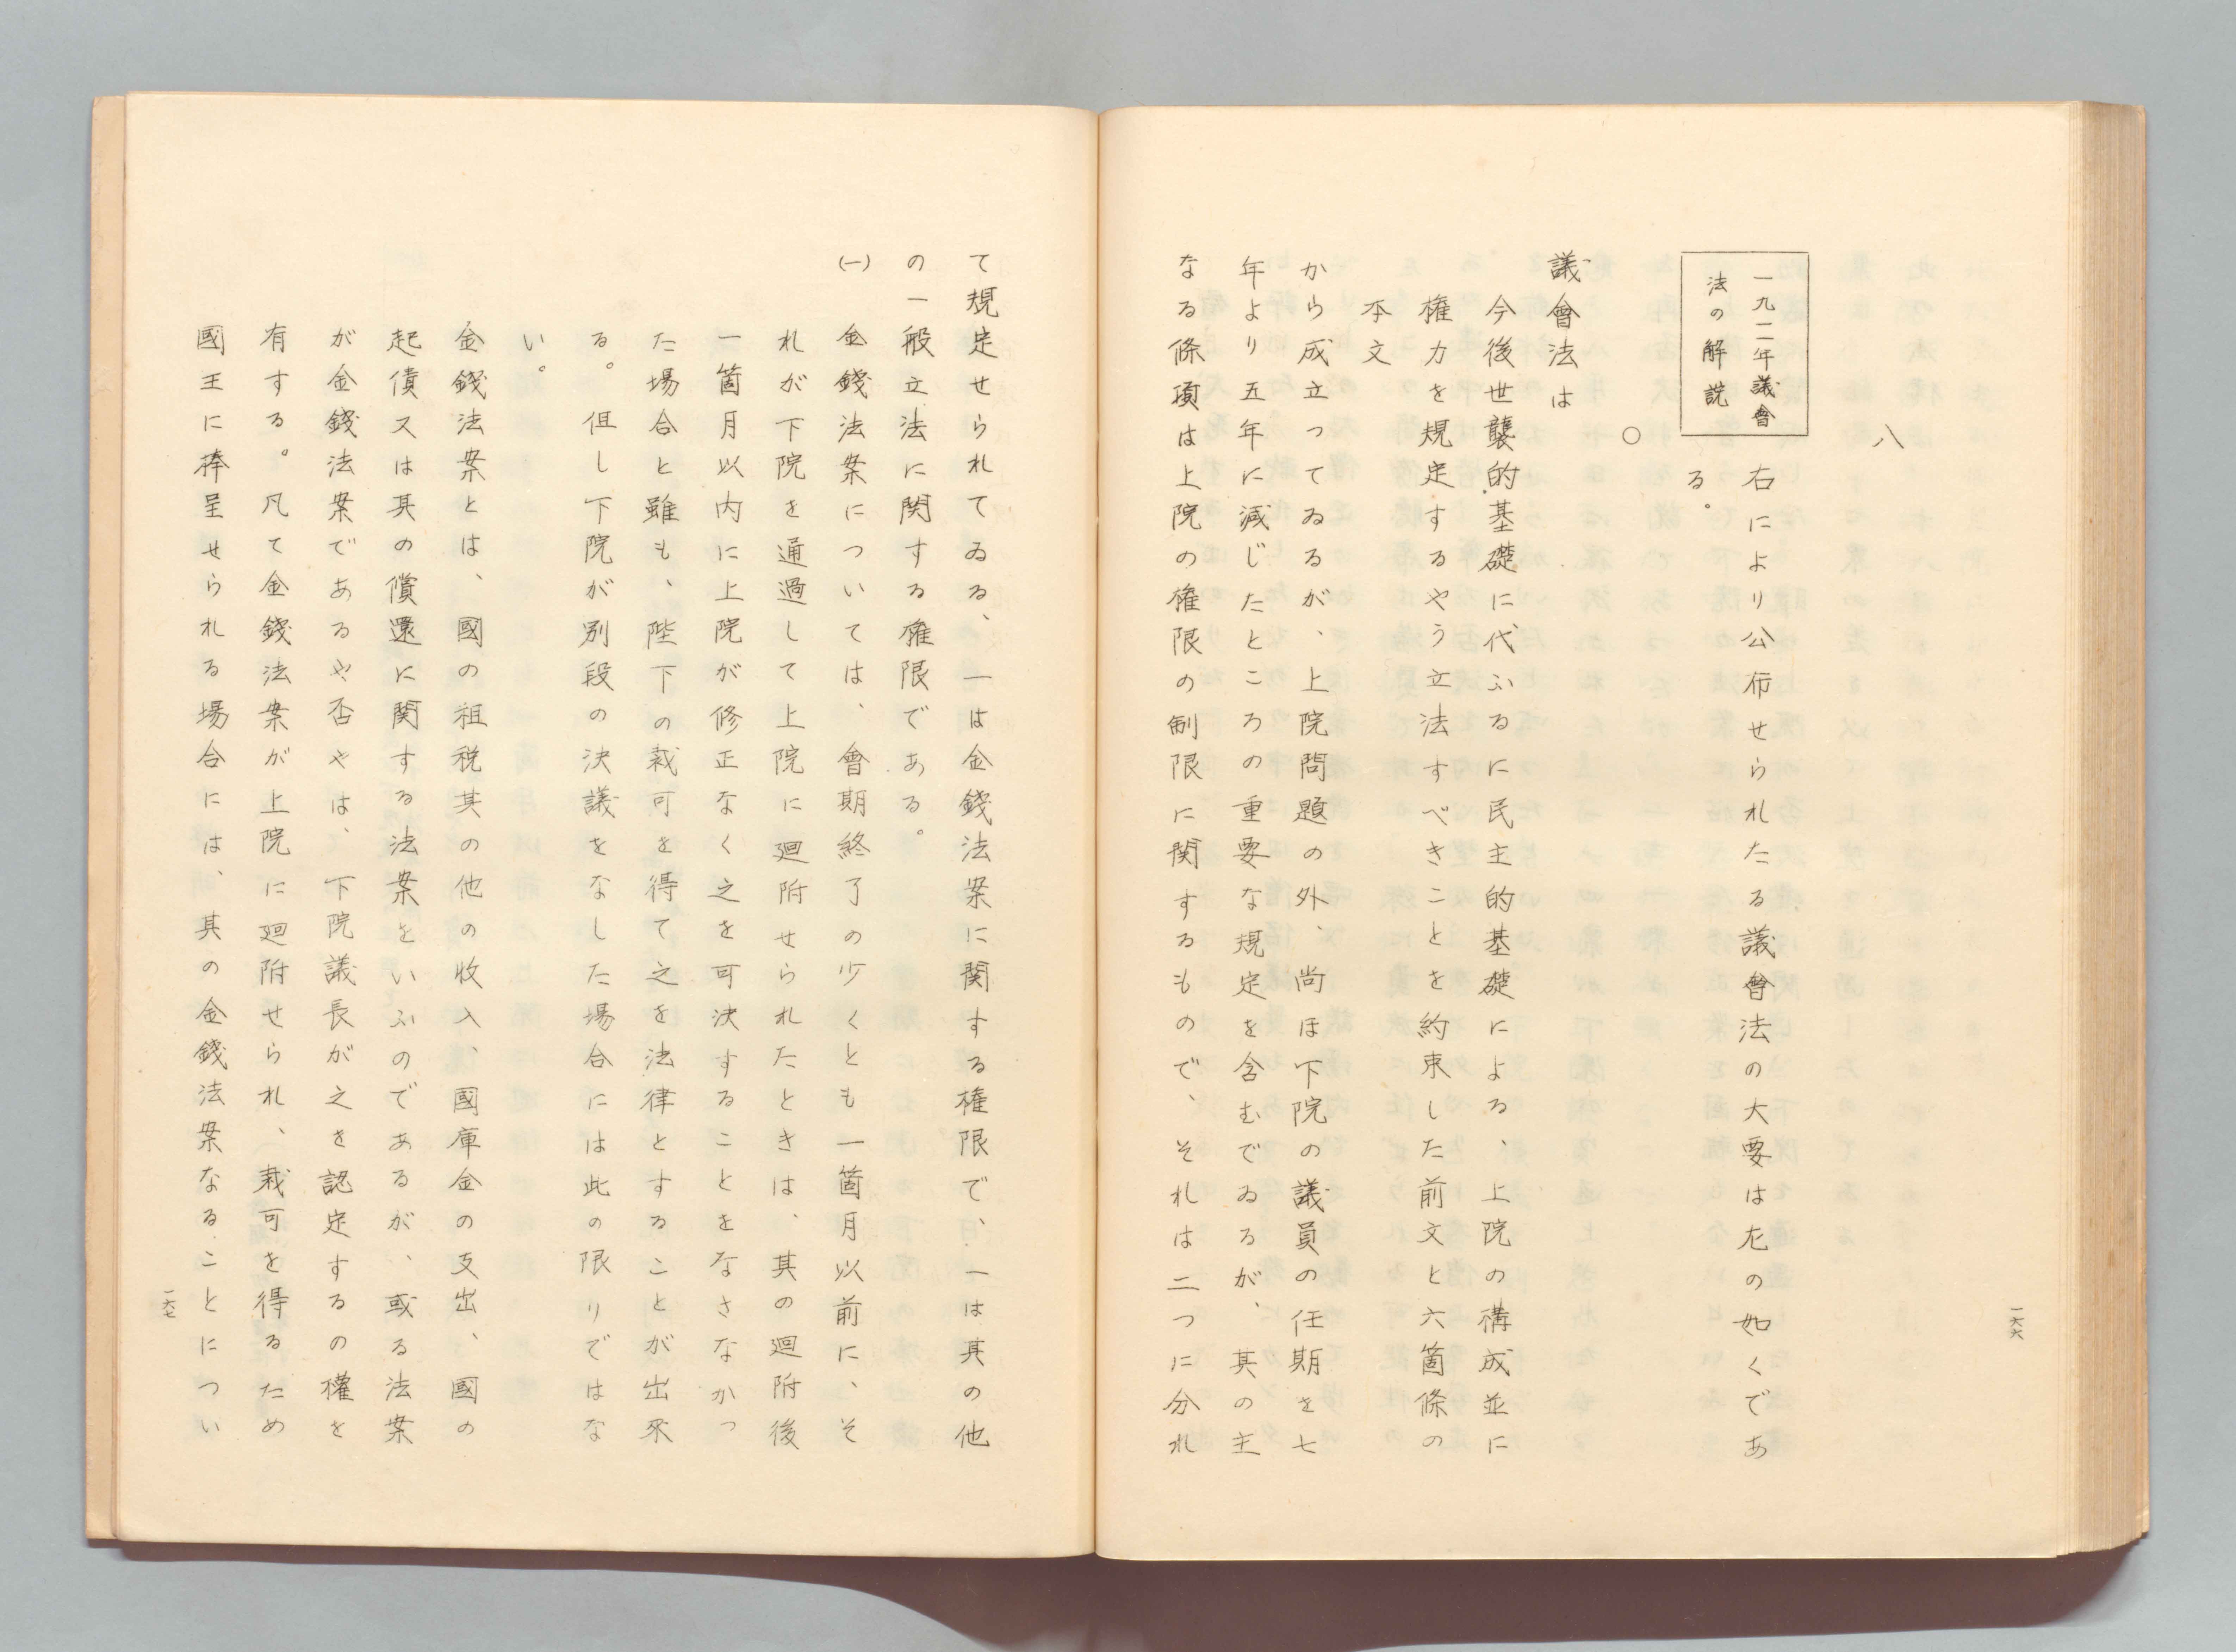 八
一九一一年議會
法の解説
右により公布せられたる議會法の大要は左の如くであ
る。
〇
議會法は
今後世襲的基礎に代ふるに民主的基礎による、上院の構成並に
権力を規定するやう立法すべきことを約束した前文と六箇條の
本文
から成立つてゐるが、上院問題の外、尚ほ下院の議員の任期を七
年より五年に減じたところの重要な規定を含むでゐるが、其の主
なる條項は上院の権限の制限に関するもので、それは二つに分れ
一六六
て規定せられてゐる、一は金錢法案に関する権限で、一は其の他
の一般立法に関する権限である。
(一)金錢法案については、會期終了の少くとも一箇月以前に、そ
れが下院を通過して上院に廻附せられたときは、其の廻附後
一箇月以内に上院が修正なく之を可決することをなさなかつ
た場合と雖も、陛下の裁可を得て之を法律とすることが出來
る。但し下院が別段の決議をなした場合には此の限りではな
い。
金錢法案とは、國の租税其の他の收入、國庫金の支出、國の
起債又は其の償還に関する法案をいふのであるが、或る法案
が金錢法案であるや否やは、下院議長が之を認定するの權を
有する。凡て金錢法案が上院に廻附せられ、裁可を得るため
國王に捧呈せられる場合には、其の金錢法案なることについ
一六七